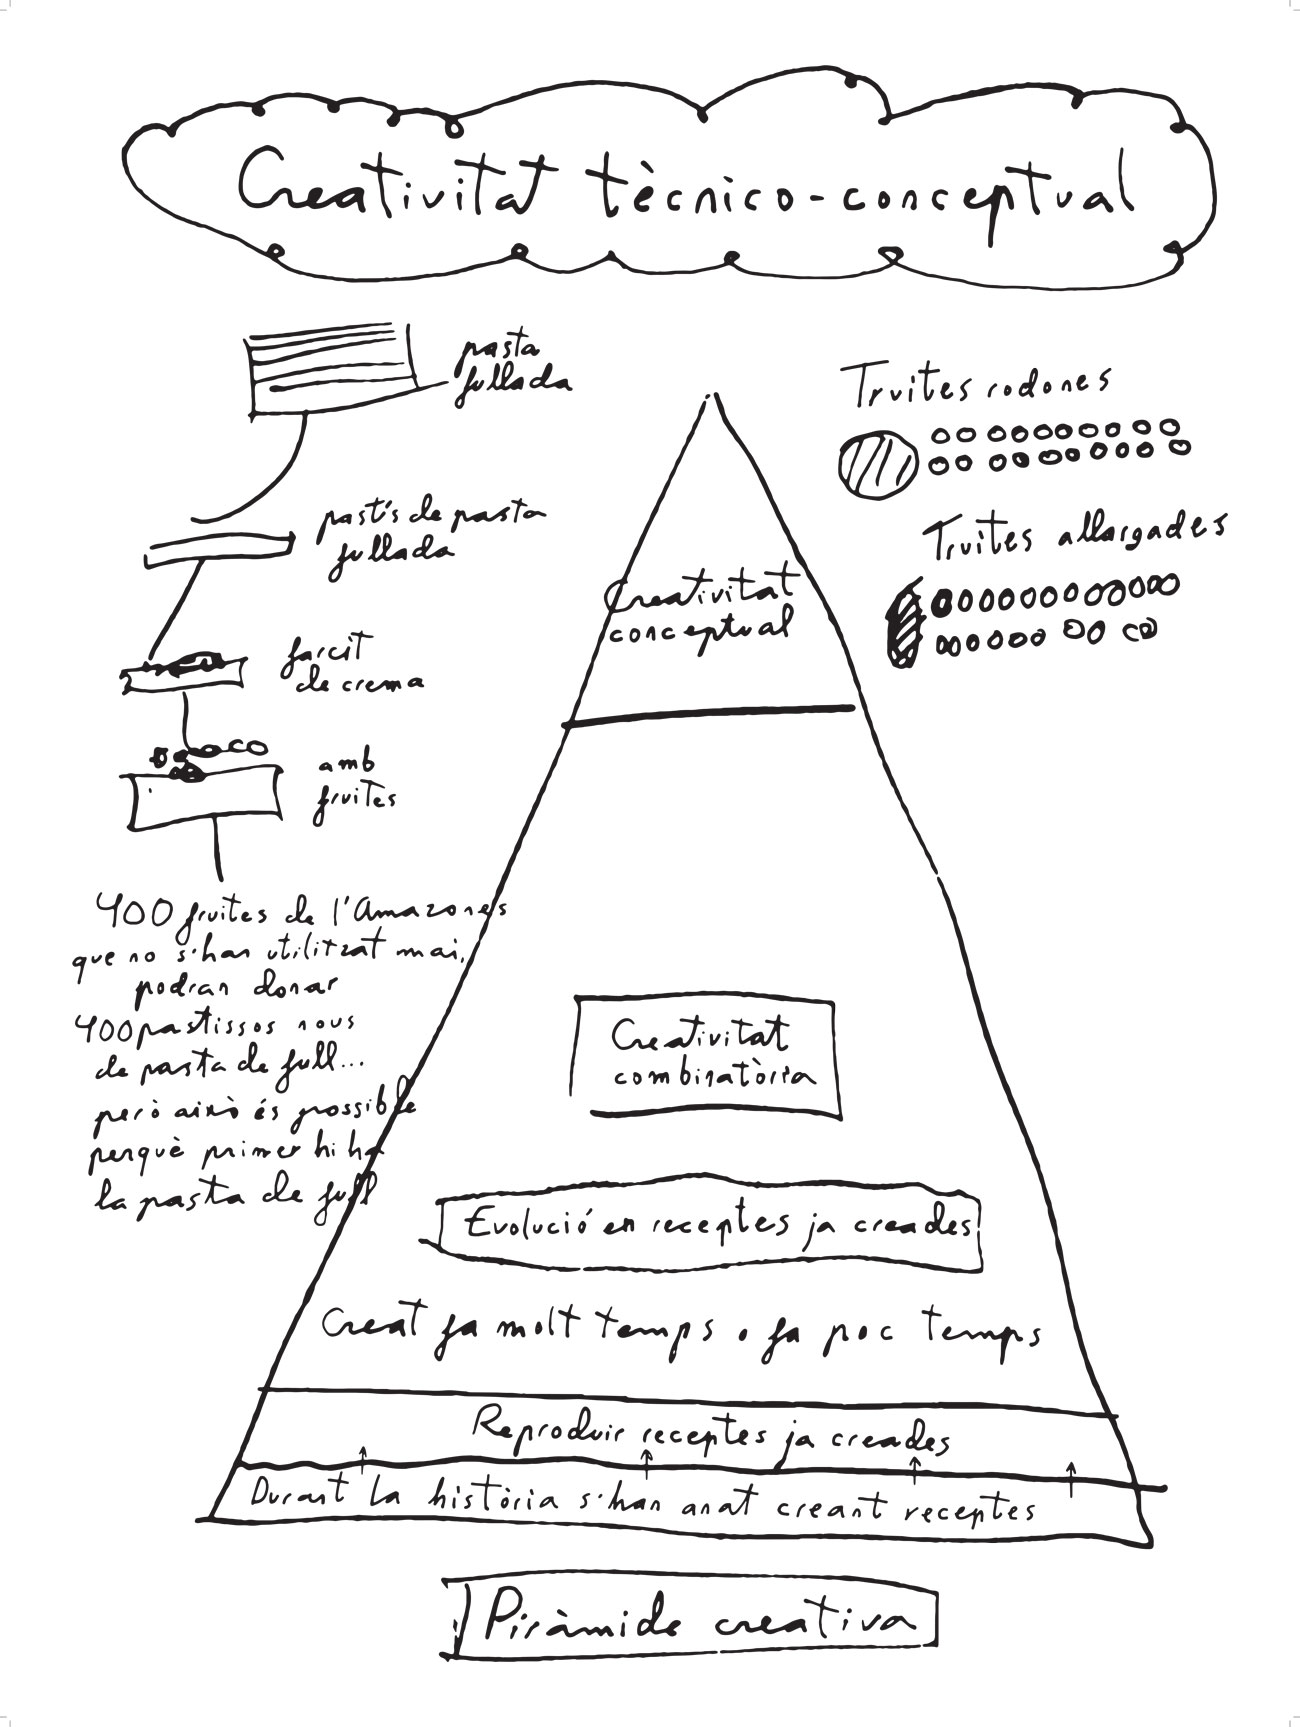 Creativitat tècnico-conceptual
pasta
fullada
pastís de pasta
fullada
farcit
de crema
amb
fruites
400 fruites de l'Amazones
que no s'han utilitzat mai,
podran donar
400 pastissos nous
de pasta de full...
però això és possible
perquè primer hi ha
la pasta de full
Truites rodones
Truites allargades
Creativitat
conceptual
Creativitat
combinatòria
Evolució en receptes ja creades
Creat fa molt temps o fa poc temps
Reproduir receptes ja creades
Durant la història s'han anat creant receptes
Piràmide creativa